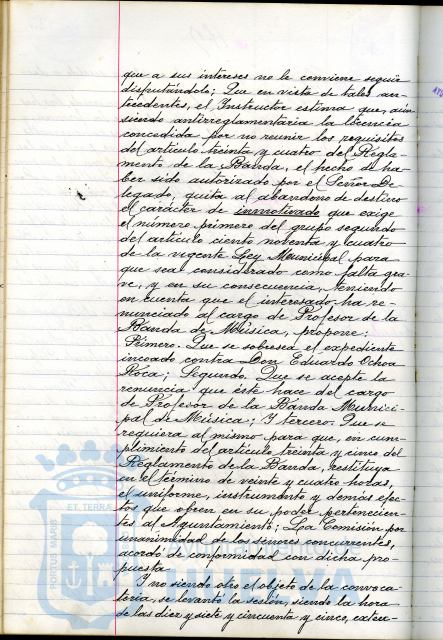 que a sus intereses no le conviene seguir
disfrutándola; Que en vista de tales an-
tecedentes, el Instructor estima que, aún
siendo antirreglamentaria la licencia
concedida por no reunir los requisitos
del artículo treinta y cuatro del Regla-
mento de la Banda, el hecho de ha-
ber sido autorizado por el Señor De-
legado, quita al abandono de destino
el carácter de inmotivado que exige
el número primero del grupo segundo
del artículo ciento noventa y cuatro
de la vigente Ley Municipal para
que sea considerado como falta gra-
ve, y en su consecuencia, teniendo
en cuenta que el interesado ha re-
nunciado al cargo de Profesor de la
Banda de Música, propone:
Primero. Que se sobresea el expediente
incoado contra Don Eduardo Ochoa
Roca; Segundo. Que se acepte la
renuncia que éste hace del cargo
de Profesor de la Banda Munici-
pal de Música; Y tercero. Que se
requiera al mismo para que, en cum-
plimiento del artículo treinta y cinco del
Reglamento de la Banda, restituya
en el término de veinte y cuatro horas,
el uniforme, instrumento y demás efec-
tos que obren en su poder pertenecien-
tes al Ayuntamiento; La Comisión por
unanimidad de los señores concurrentes,
acordó de conformidad con dicha pro-
puesta.
Y no siendo otro el objeto de la convoca-
toria, se levantó la sesión, siendo la hora
de las diez y siete y cincuenta y cinco, exten-
PORTUS MARIS
ET TERRÆ